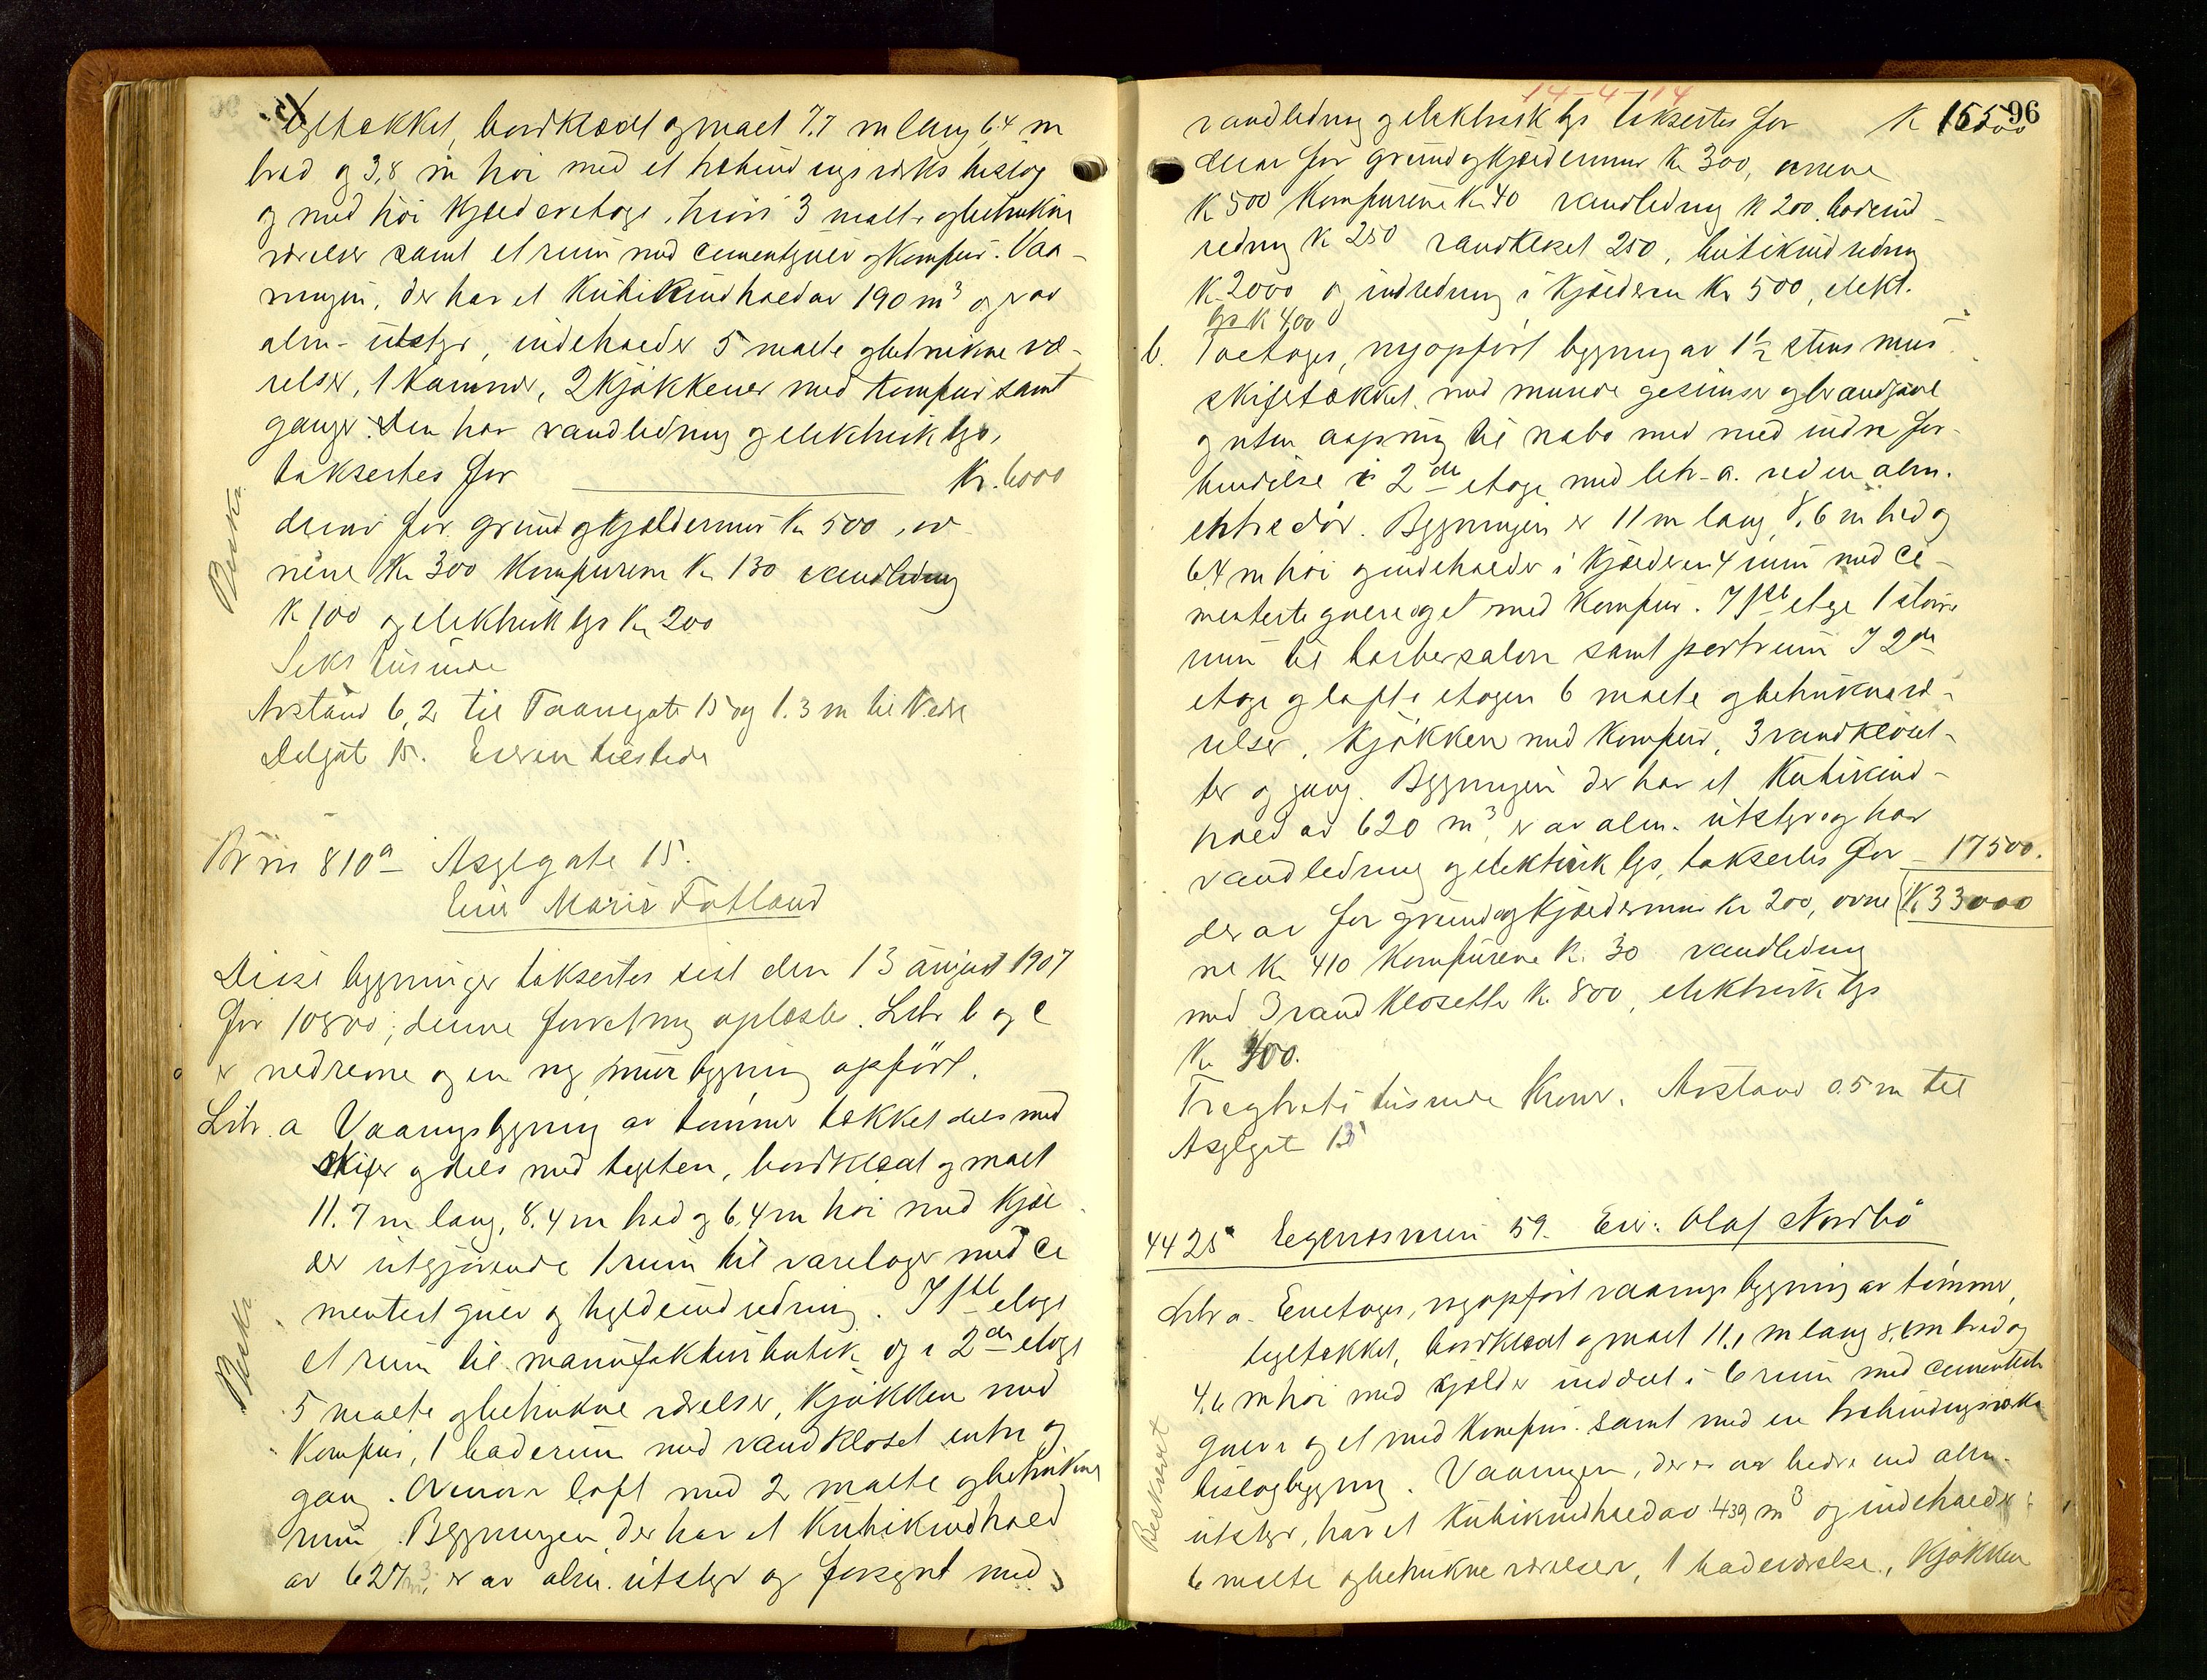 tegltækket, bordklædt og malt 7,7 m lang 6,4 m
bred og 3,8 m høi med et træbindingsverks bislag
og med høi kjælderetage, hvori 3 malte og betrukne
værelser samt et rum med cementgulv og komfur. Vaa-
ningen, der har et kubikindhold av 190 m³ og er av
alm. utstyr, indeholder 5 malte og betrukne væ-
relser, 1 kammer, 2 kjøkkener med komfur samt
ganger. Den har vandledning og elektrisk lys,
taksertes for Kr. 6000
derav for grund og kjældermur Kr 500, ov-
nene Kr 300 Komfurene Kr 130 vandledning
Kr 100 og elektrisk lys Kr 200
Seks tusinde
Avstand 6,2 til Taarngate 15 og 1.3 m til Nedre
Dalgat 15. Eieren tilstede
Beskr.
Br nr 810a Asylgate 15.
Eier Marie Fatland
Disse bygninger taksertes sist den 13 august 1907
for 10800; denne forretning oplæstes. Litr b og c
er nedrevne og en ny murbygning opført.
Litr. a Vaaningsbygning av tømmer tækket dels med
skifer og dels med teglsten, bordklædt og malt
11.7 m lang, 8.4 m bred og 6.4 m høi med kjæl-
der utgjørende 1 rum til varelager med ce
mentert gulv og hyldeindredning. I 1ste etage
et rum til manufakturbutik og i 2den etage
5 malte og betrukne værelser, kjøkken med
komfur, 1 baderum med vandkloset entre og
gang. Ovenover loft med 2 malte og betrukne
rum. Bygningen, der har et kubikindhold
av 627 m³, er av alm. utstyr og forsynt med
Beskr.
14-4-14
96
vandledning og elektrisk lys taksertes for K 15500
derav for grund og kjældermur Kr 300, ovnene
K 500 Komfurene Kr 40 vandledning K 200. badeind-
redning K 250 vandkloset 250, butikindredning
K 2000 og indredning i kjælderen Kr 500, elekt.
lys K 400
b. Toetages, nyopført bygning av 1½ stens mur
skifertækket, med murede gesimser og brandgavl
og uten aapning til nabo men med indre for-
bindelse i 2den etage med litr. a. ved en alm.
entredør. Bygningen er 11 m lang, 8,6 m bred og
6,4 m høi og indeholder i kjælderen 4 rum med ce-
menterte gulve og et med komfur. I 1ste etage 1 større
rum til barbersalon samt portrum I 2den
etage og loftsetagen 6 malte og betrukne væ-
relser, kjøkken med komfur, 3 vandkloset-
ter og gang. Bygningen der har et kubikind-
hold av 620 m³, er av alm. utstyr og har
vandledning og elektrisk lys, taksertes for 17500.
K 33000
derav for grund og kjældermur Kr 200, ovne
ne Kr 410 Komfurene K. 30 vandledning
med 3 vandklosetter Kr. 800, elektrisk lys
Kr 400.
Tregtreti tusinde Kroner. Avstand 0.5 m til
Asylgat 13
4425 Egenæsveien 59. Eier: Olaf Nordbö
Litr a. Enetages, nyopført vaaningsbygning av tømmer,
tegltækket, bordklædt og malt 11,1 m lang 8,6 m bred og
4,6 m høi med kjælder inddelt i 6 rum med cementerte
gulve og et med komfur samt med en træbindingsverks
bislagbygning. Vaaningen, der er av bedre end alm.
utstyr, har et kubikindhold av 439 m³ og indeholder
6 malte og betrukne værelser, 1 badeværelse, kjøkken
Beskrevet